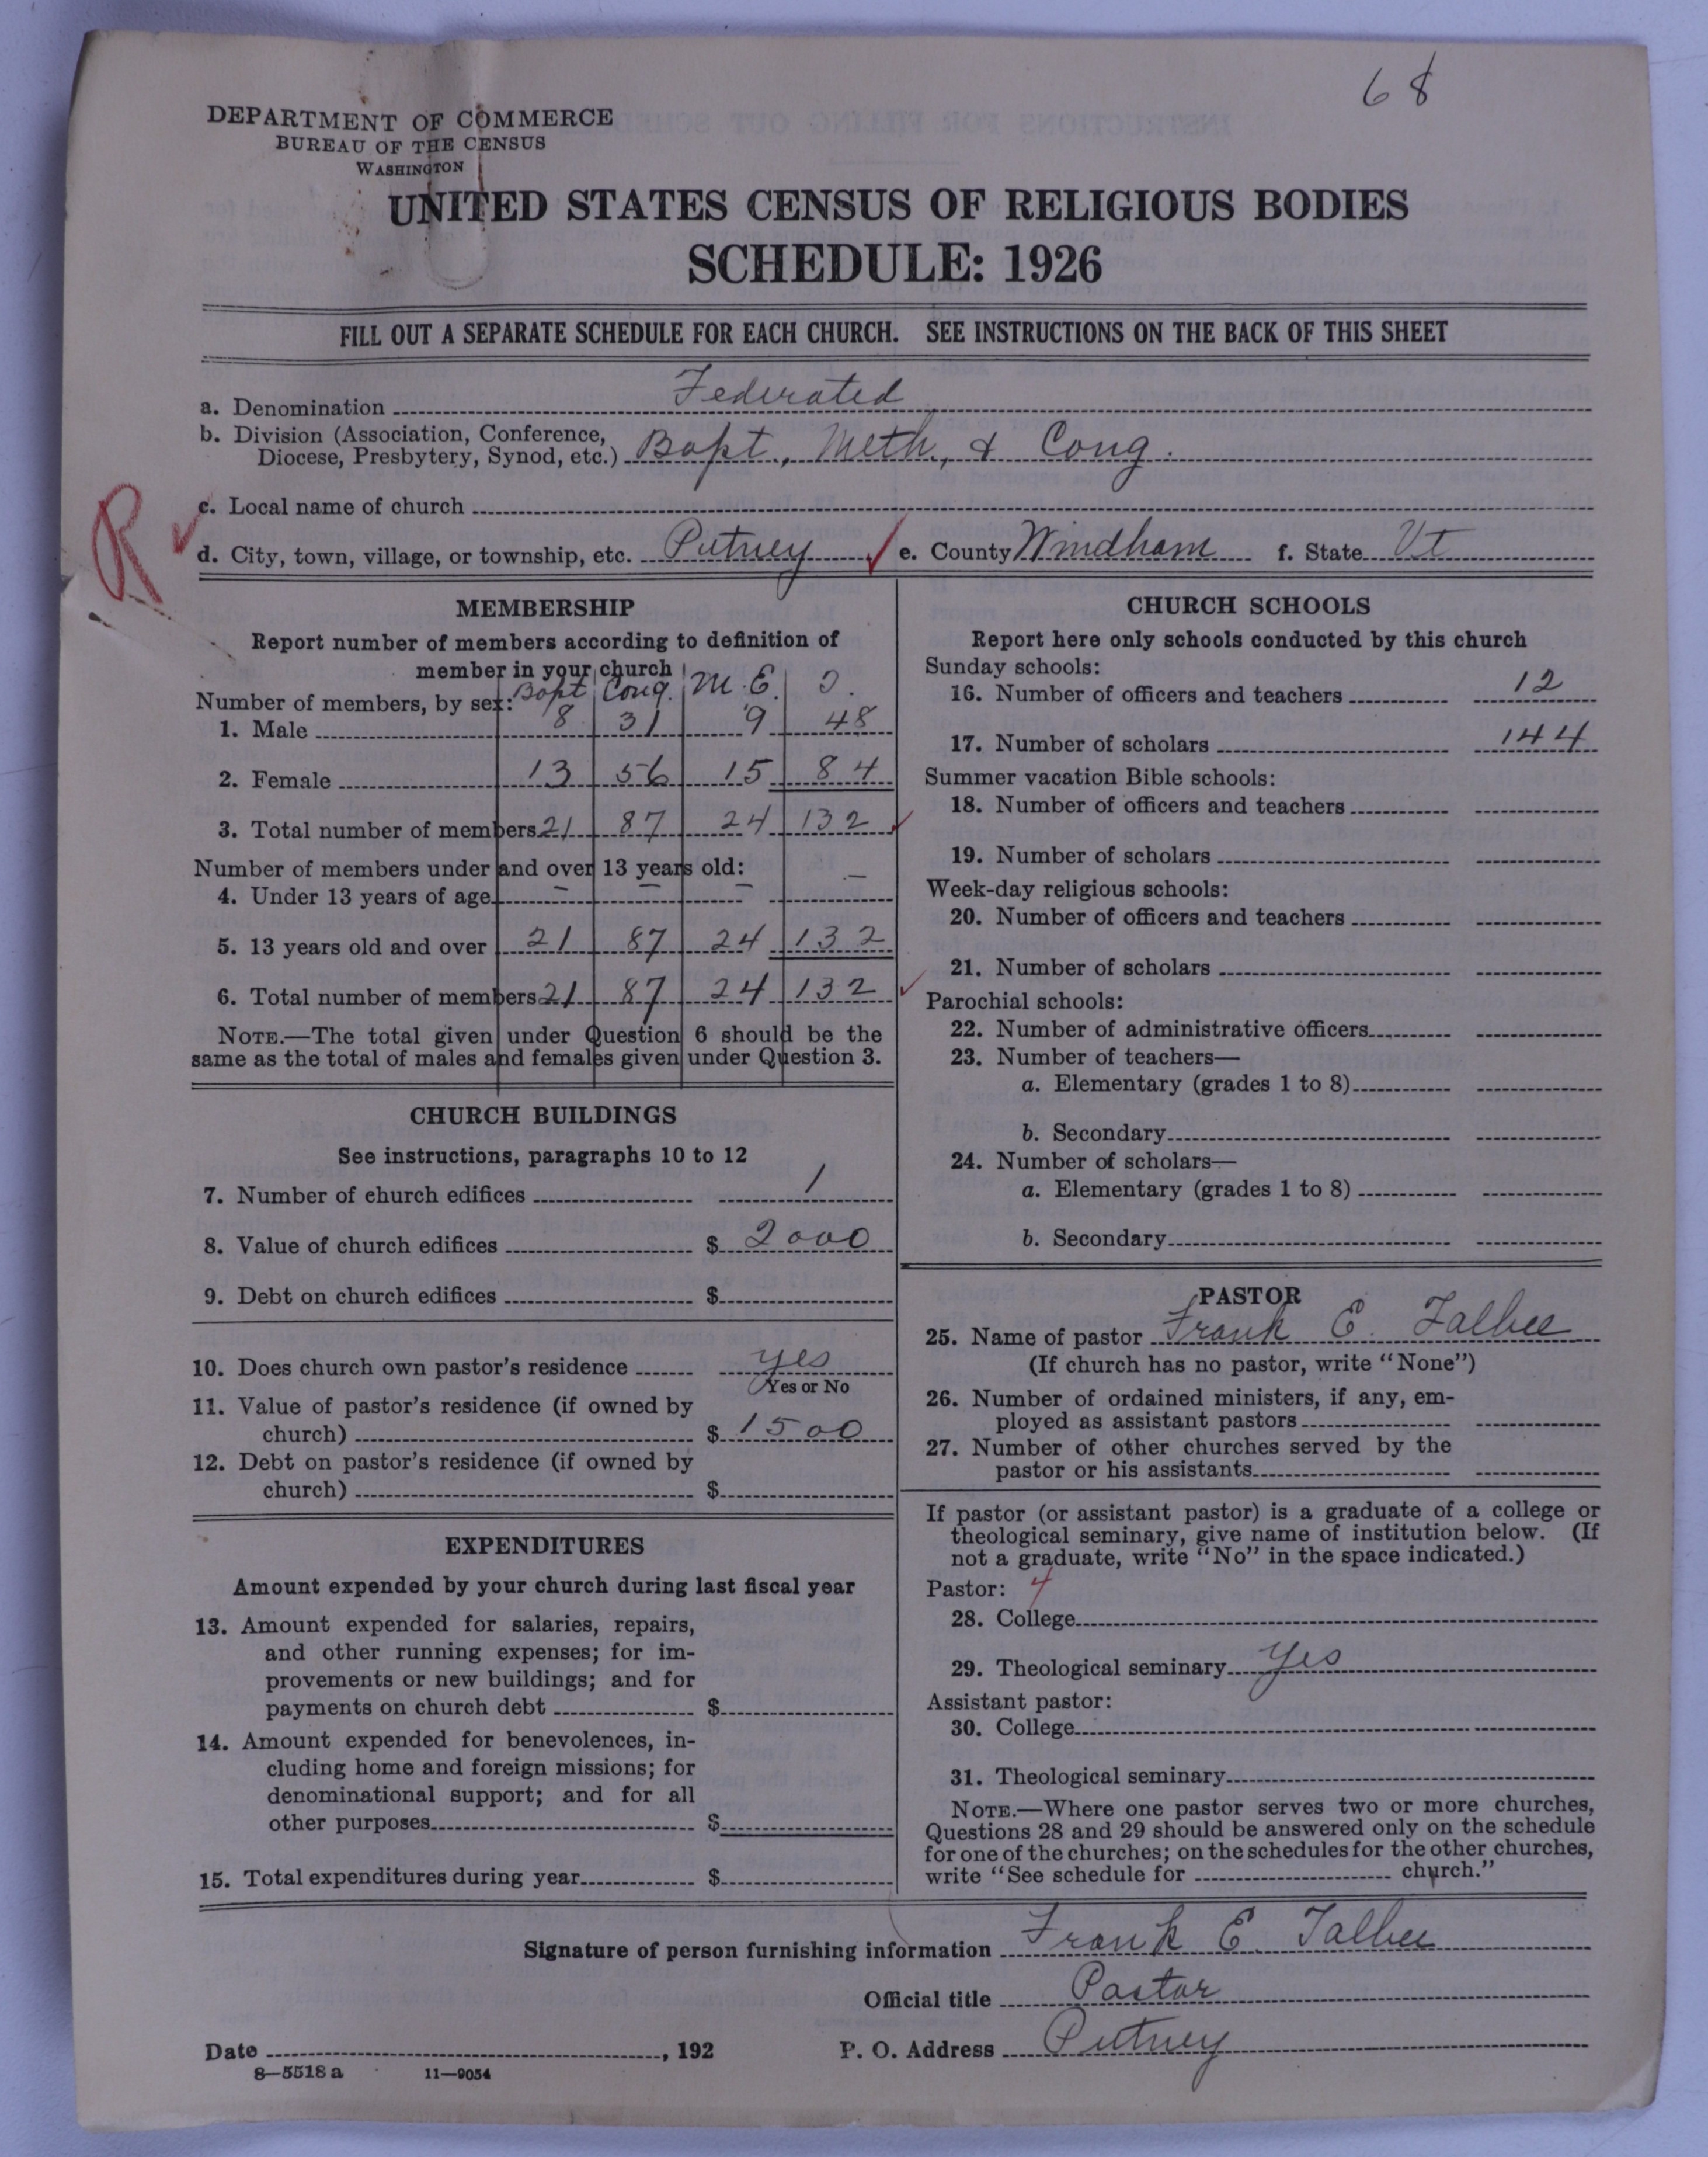 68
DEPARTMENT OF COMMERCE
BUREAU OF THE CENSUS
WASHINGTON
UNITED STATES CENSUS OF RELIGIOUS BODIES
SCHEDULE: 1926
FILL OUT A SEPARATE SCHEDULE FOR EACH CHURCH. SEE INSTRUCTIONS ON THE BACK OF THIS SHEET
a. Denomination Federated
b. Division (Association, Conference,
Diocese, Presbytery, Synod, etc.) Bapt., Meth., & Cong.
R
c. Local name of church
d. City, town, village, or township, etc. Putney e. County Windham f. State Vt
MEMBERSHIP
Report number of members according to definition of
member in your church
Number of members, by sex: Bapt Cong. M.E.
1. Male 8 31 9 48
2. Female 13 56 15 84
3. Total number of members 21 87 24 132
Number of members under and over 13 years old:
4. Under 13 years of age – – – –
5. 13 years old and over 21 87 24 132
6. Total number of members 21 87 24 132
NOTE.—The total given under Question 6 should be the
same as the total of males and females given under Question 3.
CHURCH BUILDINGS
See instructions, paragraphs 10 to 12
7. Number of church edifices 1
8. Value of church edifices $ 2000
9. Debt on church edifices $
10. Does church own pastor's residence yes
Yes or No
11. Value of pastor's residence (if owned by
church) $ 1500
12. Debt on pastor's residence (if owned by
church) $
EXPENDITURES
Amount expended by your church during last fiscal year
13. Amount expended for salaries, repairs,
and other running expenses; for im-
provements or new buildings; and for
payments on church debt $
14. Amount expended for benevolences, in-
cluding home and foreign missions; for
denominational support; and for all
other purposes $
15. Total expenditures during year $
CHURCH SCHOOLS
Report here only schools conducted by this church
Sunday schools:
16. Number of officers and teachers 12
17. Number of scholars 144
Summer vacation Bible schools:
18. Number of officers and teachers
19. Number of scholars
Week-day religious schools:
20. Number of officers and teachers
21. Number of scholars
Parochial schools:
22. Number of administrative officers
23. Number of teachers—
a. Elementary (grades 1 to 8)
b. Secondary
24. Number of scholars—
a. Elementary (grades 1 to 8)
b. Secondary
PASTOR
25. Name of pastor Frank E. Talbee
(If church has no pastor, write "None")
26. Number of ordained ministers, if any, em-
ployed as assistant pastors
27. Number of other churches served by the
pastor or his assistants
If pastor (or assistant pastor) is a graduate of a college or
theological seminary, give name of institution below. (If
not a graduate, write "No" in the space indicated.)
Pastor: 4
28. College
29. Theological seminary Yes
Assistant pastor:
30. College
31. Theological seminary
NOTE.—Where one pastor serves two or more churches,
Questions 28 and 29 should be answered only on the schedule
for one of the churches; on the schedules for the other churches,
write "See schedule for church."
Signature of person furnishing information Frank E. Talbee
Official title Pastor
Date , 192 P. O. Address Putney
8—5518 a 11—9054